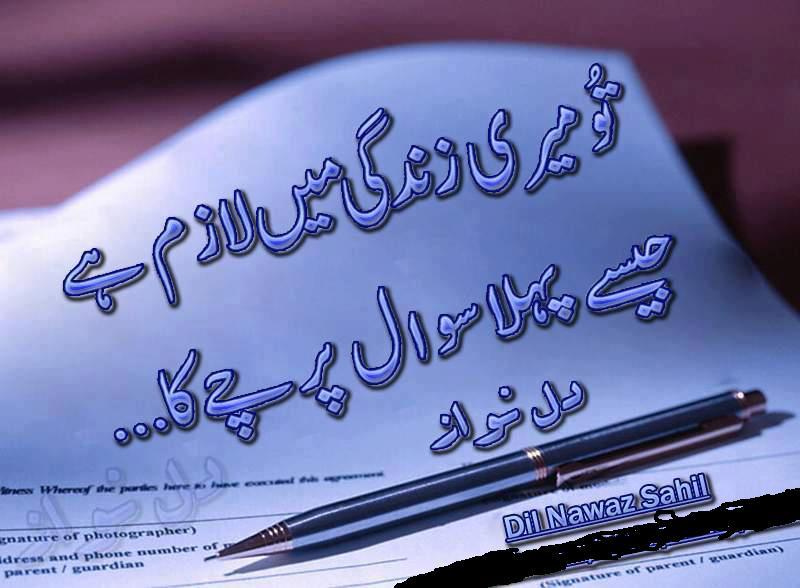 تُو میری زندگی میں لازم ہے
جیسے پہلا سوال پرچے کا...
دل نواز
دل نواز
Witness Whereof the parties here to have executed this agreement
(Signature of photographer)
Address and phone number of
parent / guardian
Dil Nawaz Sahil
(Signature of parent / guardian)